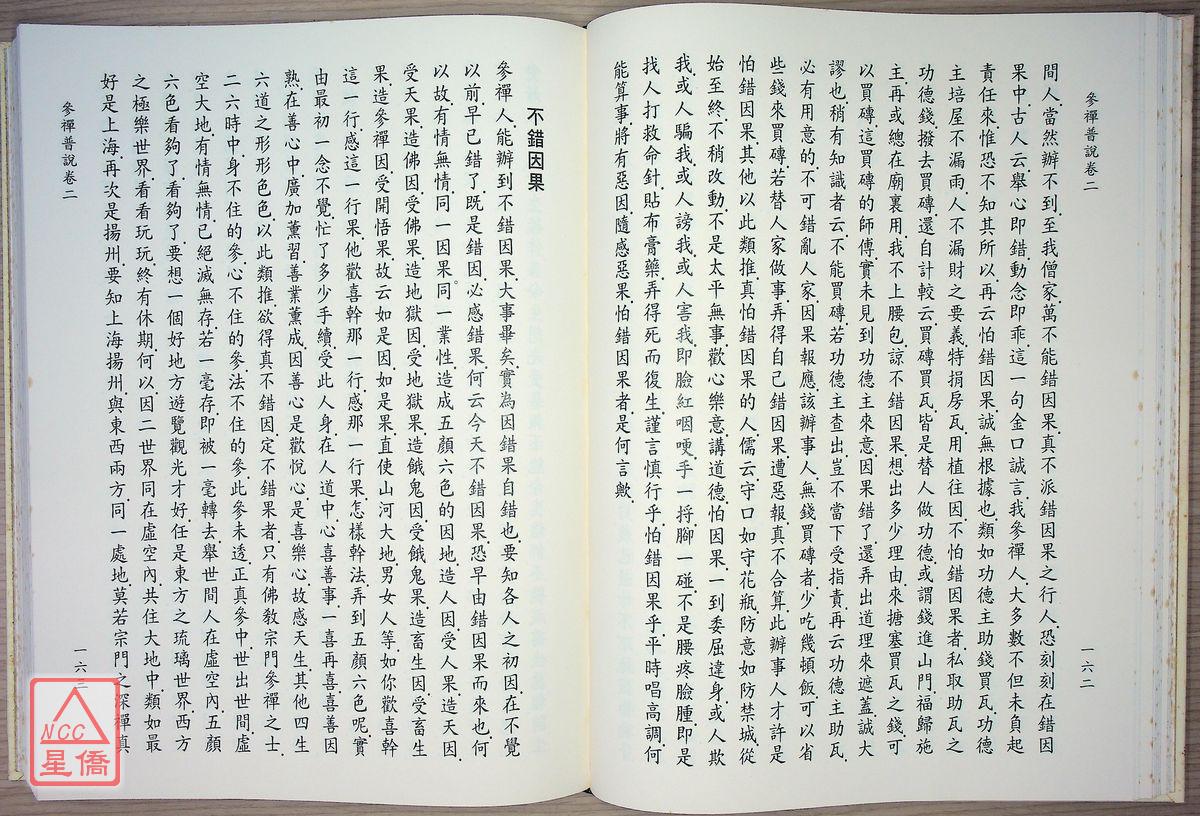 參禪普說卷二
一六二
問人當然辦不到至我僧家萬不能錯因果真不派錯因果之行人恐刻刻在錯因
果中古人云舉心即錯動念即乖這一句金口誠言我參禪人大多數不但未負起
責任來惟恐不知其所以再云怕錯因果誠無根據也類如功德主助錢買瓦功德
主培屋不漏雨人不漏財之要義特捐房瓦用植往因不怕錯因果者私取助瓦之
功德錢撥去買磚還自計較云買磚買瓦皆是替人做功德或謂錢進山門福歸施
主再或總在廟裏用我不上腰包諒不錯因果想出多少理由來搪塞買瓦之錢可
以買磚這買磚的師傅實未見到功德主來意因果錯了還弄出道理來遮蓋誠大
謬也稍有知識者云不能買磚若功德主查出豈不當下受指責再云功德主助瓦
必有用意的不可錯亂人家因果報應該辦事人無錢買磚者少吃幾頓飯可以省
些錢來買磚若替人家做事弄得自己錯因果遭惡報真不合算此辦事人才許是
怕錯因果其他以此類推真怕錯因果的人儒云守口如守花瓶防意如防禁城從
始至終不稍改動不是太平無事歡心樂意講道德怕因果一到委屈違身或人欺
我或人騙我或人謗我或人害我即臉紅咽哽手一捋腳一碰不是腰疼臉腫即是
找人打救命針貼布膏藥弄得死而復生謹言慎行乎怕錯因果乎平時唱高調何
能算事將有惡因隨感惡果怕錯因果者是何言歟
不錯因果
參禪人能辦到不錯因果大事畢矣實為因錯果自錯也要知各人之初因在不覺
以前早已錯了既是錯因必感錯果何云今天不錯因果恐早由錯因果而來也何
以故有情無情同一因果同一業性造成五顏六色的因地造人因受人果造天因
受天果造佛因受佛果造地獄因受地獄果造餓鬼因受餓鬼果造畜生因受畜生
果造參禪因受開悟果故云如是因如是果直使山河大地男女人等如你歡喜幹
這一行感這一行果他歡喜幹那一行感那一行果怎樣幹法弄到五顏六色呢實
由最初一念不覺忙了多少手續受此人身在人道中心喜善事一喜再喜喜善因
熟在善心中廣加薰習善業薰成因善心是歡悅心是喜樂心故感天生其他四生
六道之形形色色以此類推欲得真不錯因定不錯果者只有佛教宗門參禪之士
二六時中身不住的參心不住的參法不住的參此參未透正真參中世出世間虛
空大地有情無情已絕滅無存若一毫存即被一毫轉去舉世間人在虛空內五顏
六色看夠了看夠了要想一個好地方遊覽觀光才好任是東方之琉璃世界西方
之極樂世界看看玩玩終有休期何以因二世界同在虛空內共住大地中類如最
好是上海再次是揚州要知上海揚州與東西兩方同一處地莫若宗門之深禪真
參禪普說卷二
一六三
NCC
星僑